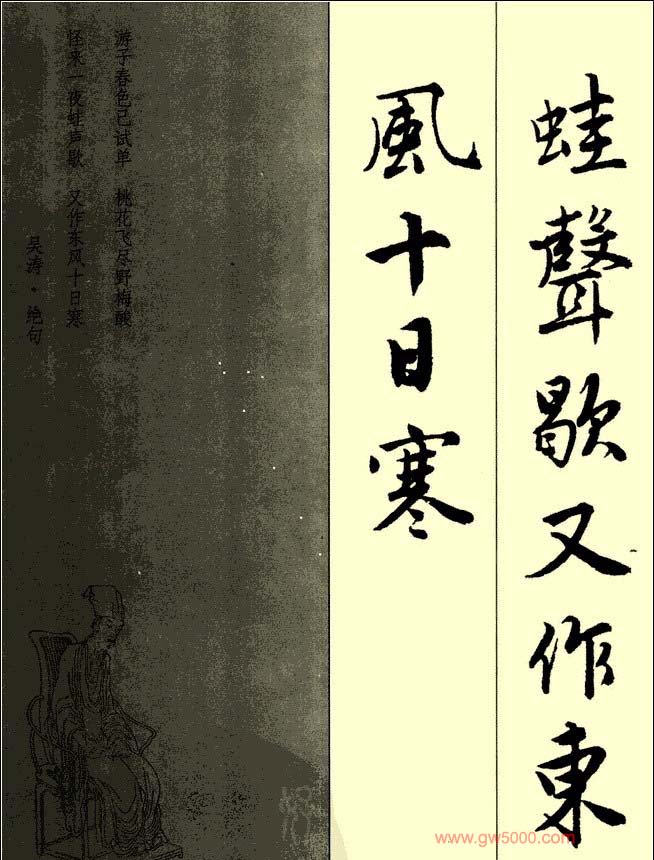 蛙聲歇又作東
風十日寒
游子春色己试单 桃花飞尽野梅酸
怪来一夜蛙声歇 又作东风十日寒
吴涛·绝句
www.gw5000.com